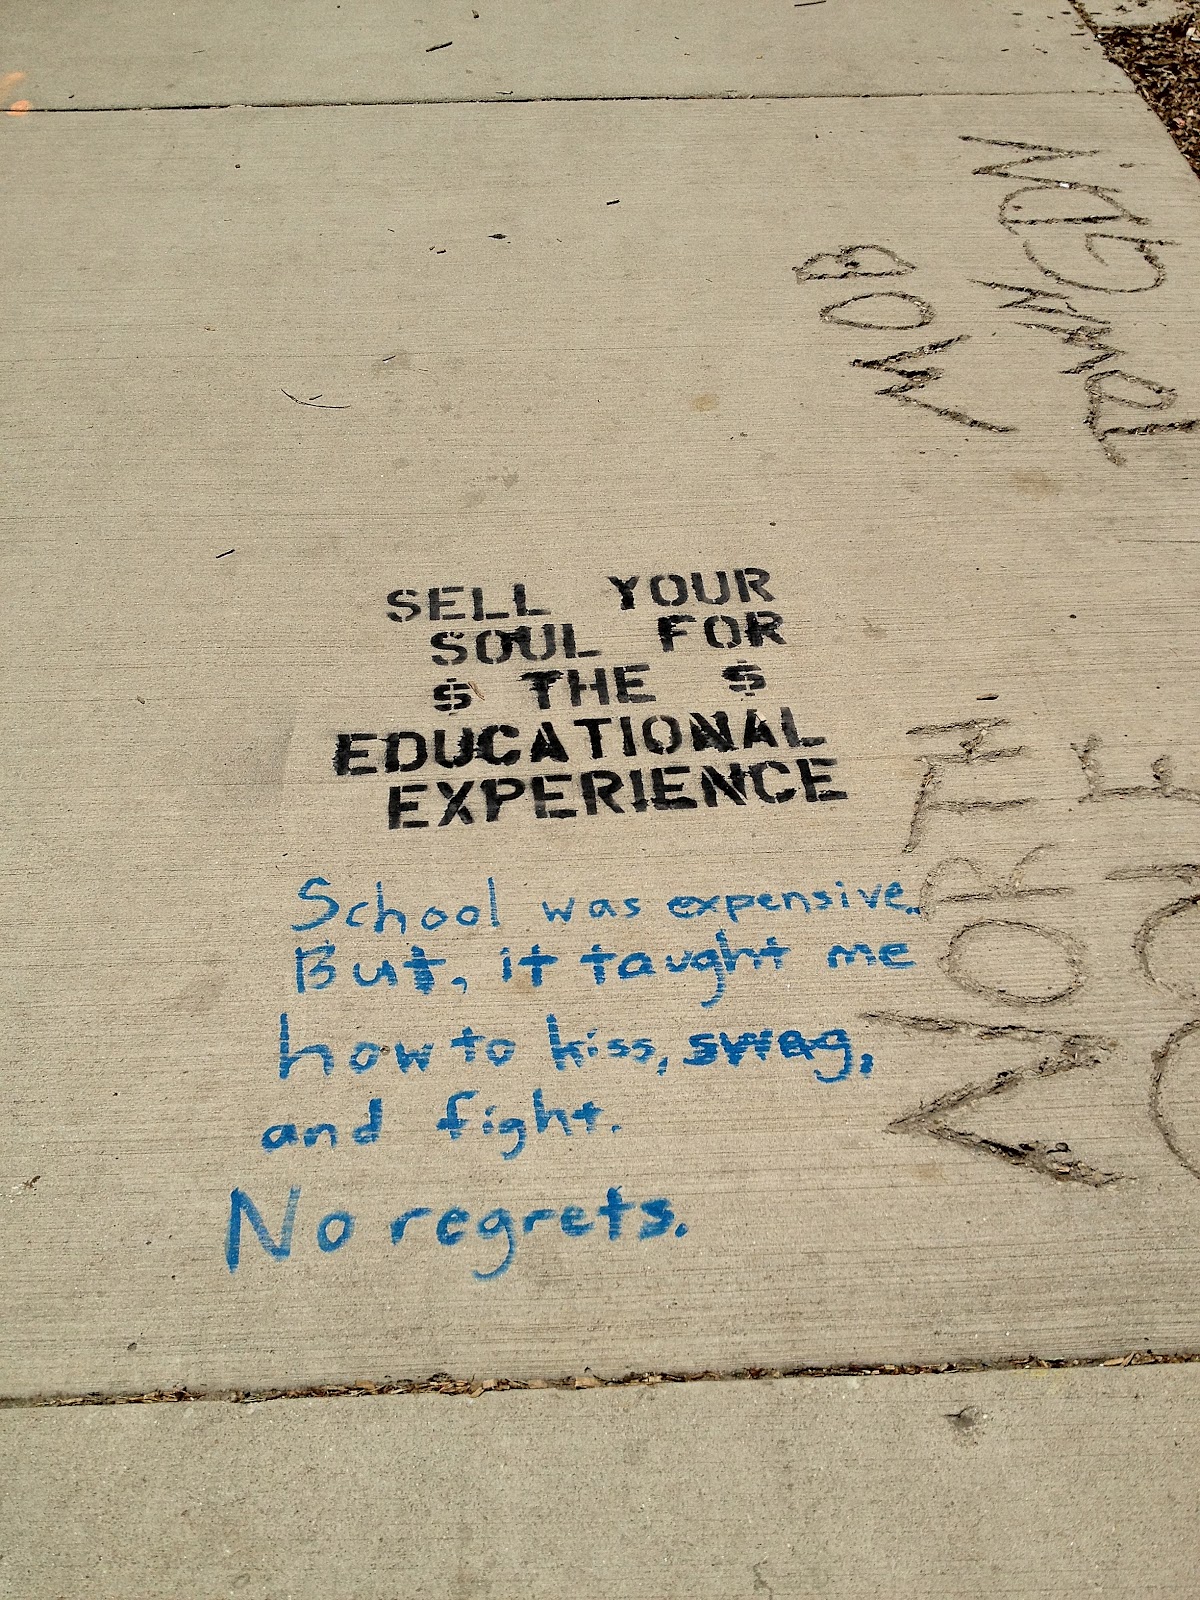 SELL YOUR
SOUL FOR
$ THE $
EDUCATIONAL
EXPERIENCE
School was expensive.
But, it taught me
how to kiss, swag,
and fight.
No regrets.
NORTH